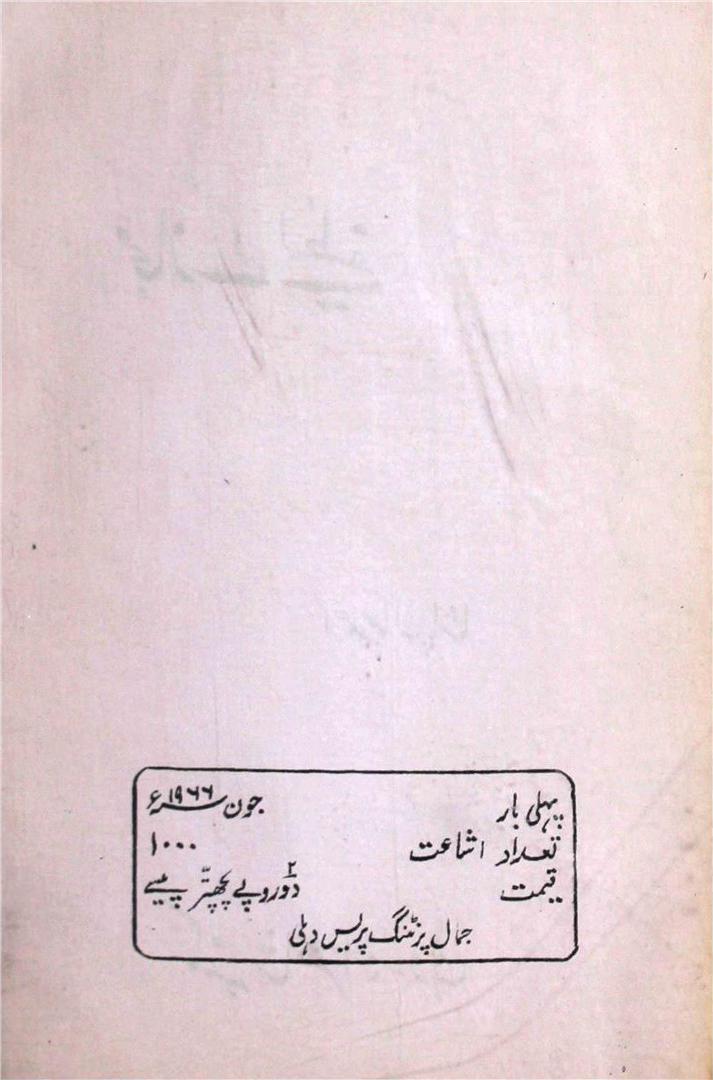 پہلی بار جون ۱۹۶۶ء
تعداد اشاعت ۱۰۰۰
قیمت دو۲ روپے پچھتّر پیسے
جمال پرنٹنگ پریس دہلی